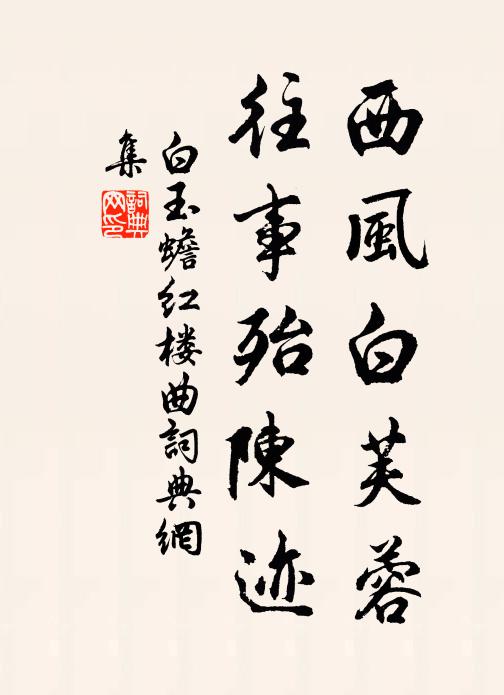 西風白芙蓉
往事殆陳迹
白玉蟾红楼曲詞典網
集
詞典網印